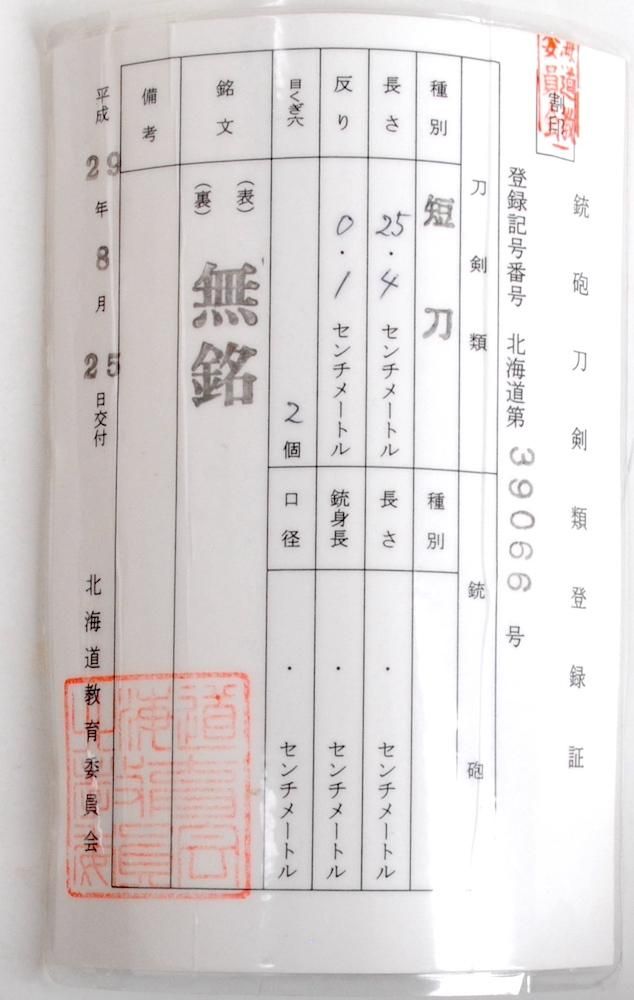 銃砲刀剣類登録証
割印
登録記号番号 北海道第 39066 号
刀剣類 銃砲
種別 短刀 種別
長さ 25.4 センチメートル 長さ ・ センチメートル
反り 0.1 センチメートル 銃身長 ・ センチメートル
目くぎ穴 2個 口径 ・ センチメートル
銘文 (表) 無銘
(裏)
備考
平成 29 年 8 月 25 日交付 北海道教育委員会